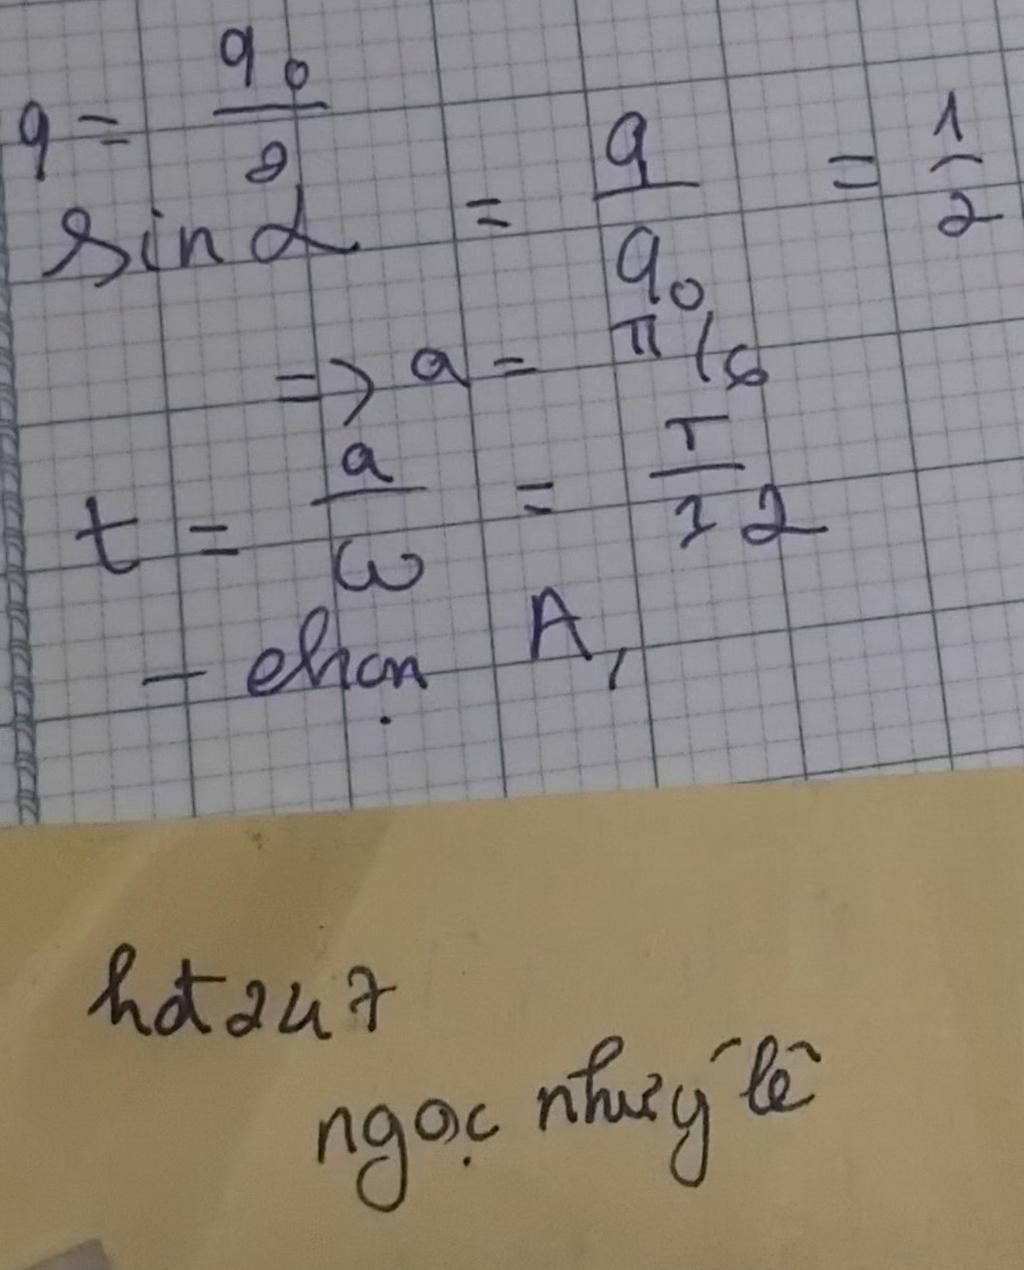 q = q₀/2
sin α = q/q₀ = 1/2
=> a = π/6
t = a/ω = T/12
– chọn A,
hđ247
ngọc như ý lê